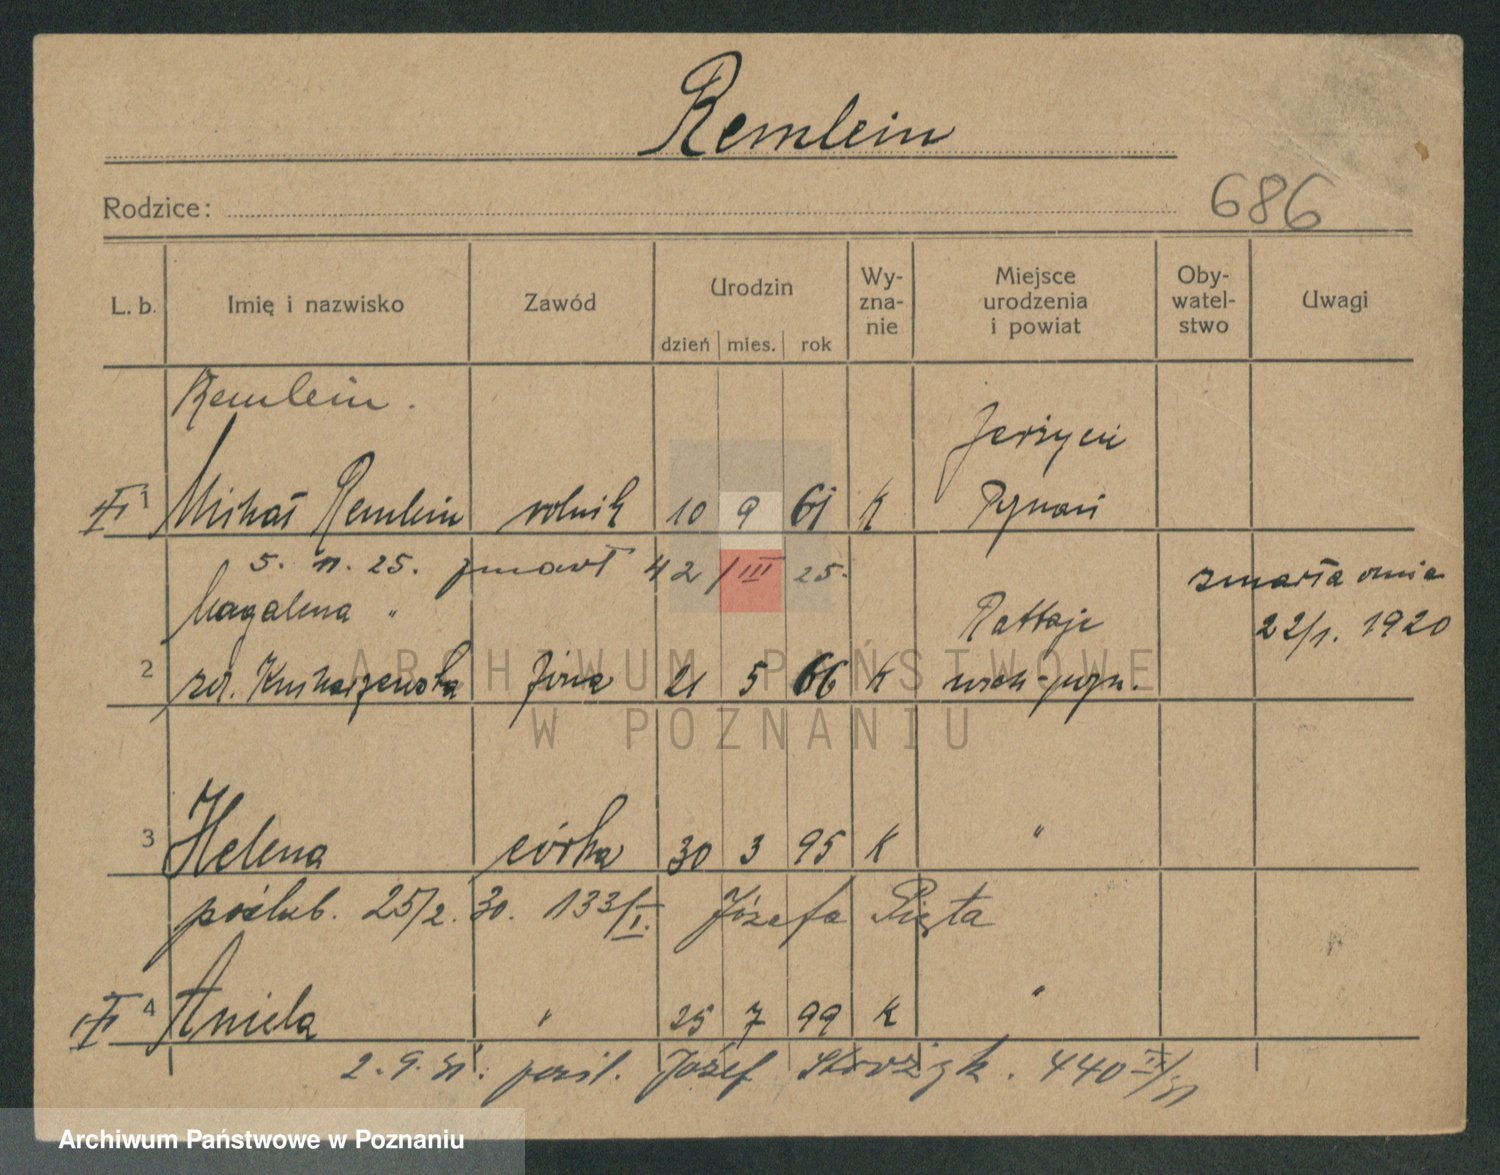 Remlein
Rodzice:
686
L. b. Imię i nazwisko Zawód Urodzin dzień mies. rok Wy-zna-nie Miejsce urodzenia i powiat Oby-watel-stwo Uwagi
Remlein.
Jerzyce
1 Michał Remlein rolnik 10 9 61 K Poznań
5. 11. 25. zmarł 42/III 25.
zmarła dnia
Magdalena " Rattaje
22/1. 1920
2 żona 21 5 66 K
3 Helena córka 30 3 95 K "
poślub. 25/2. 30. 133/I. Józefa Pięta
4 Aniela " 25 7 99 K "
2. 9. 31. pośl. Józef 440
ARCHIWUM PAŃSTWOWE
W POZNANIU
Archiwum Państwowe w Poznaniu